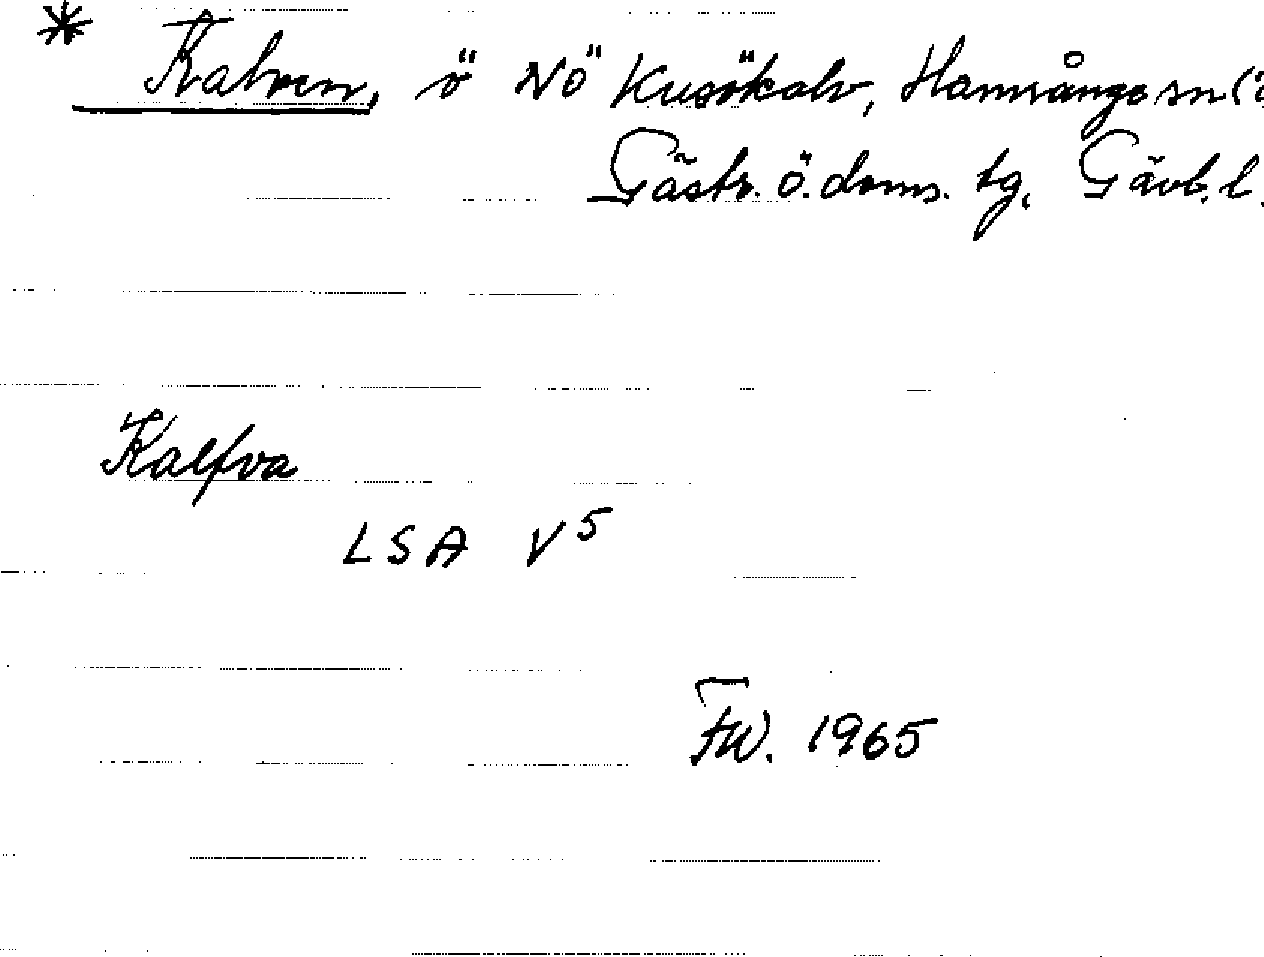 * Kalven, ö NÖ Kusökalv, Hamrånge sn (i
Gästr. ö. doms. tg. Gävl. l.
Kalfva
LSA V5
FW. 1965